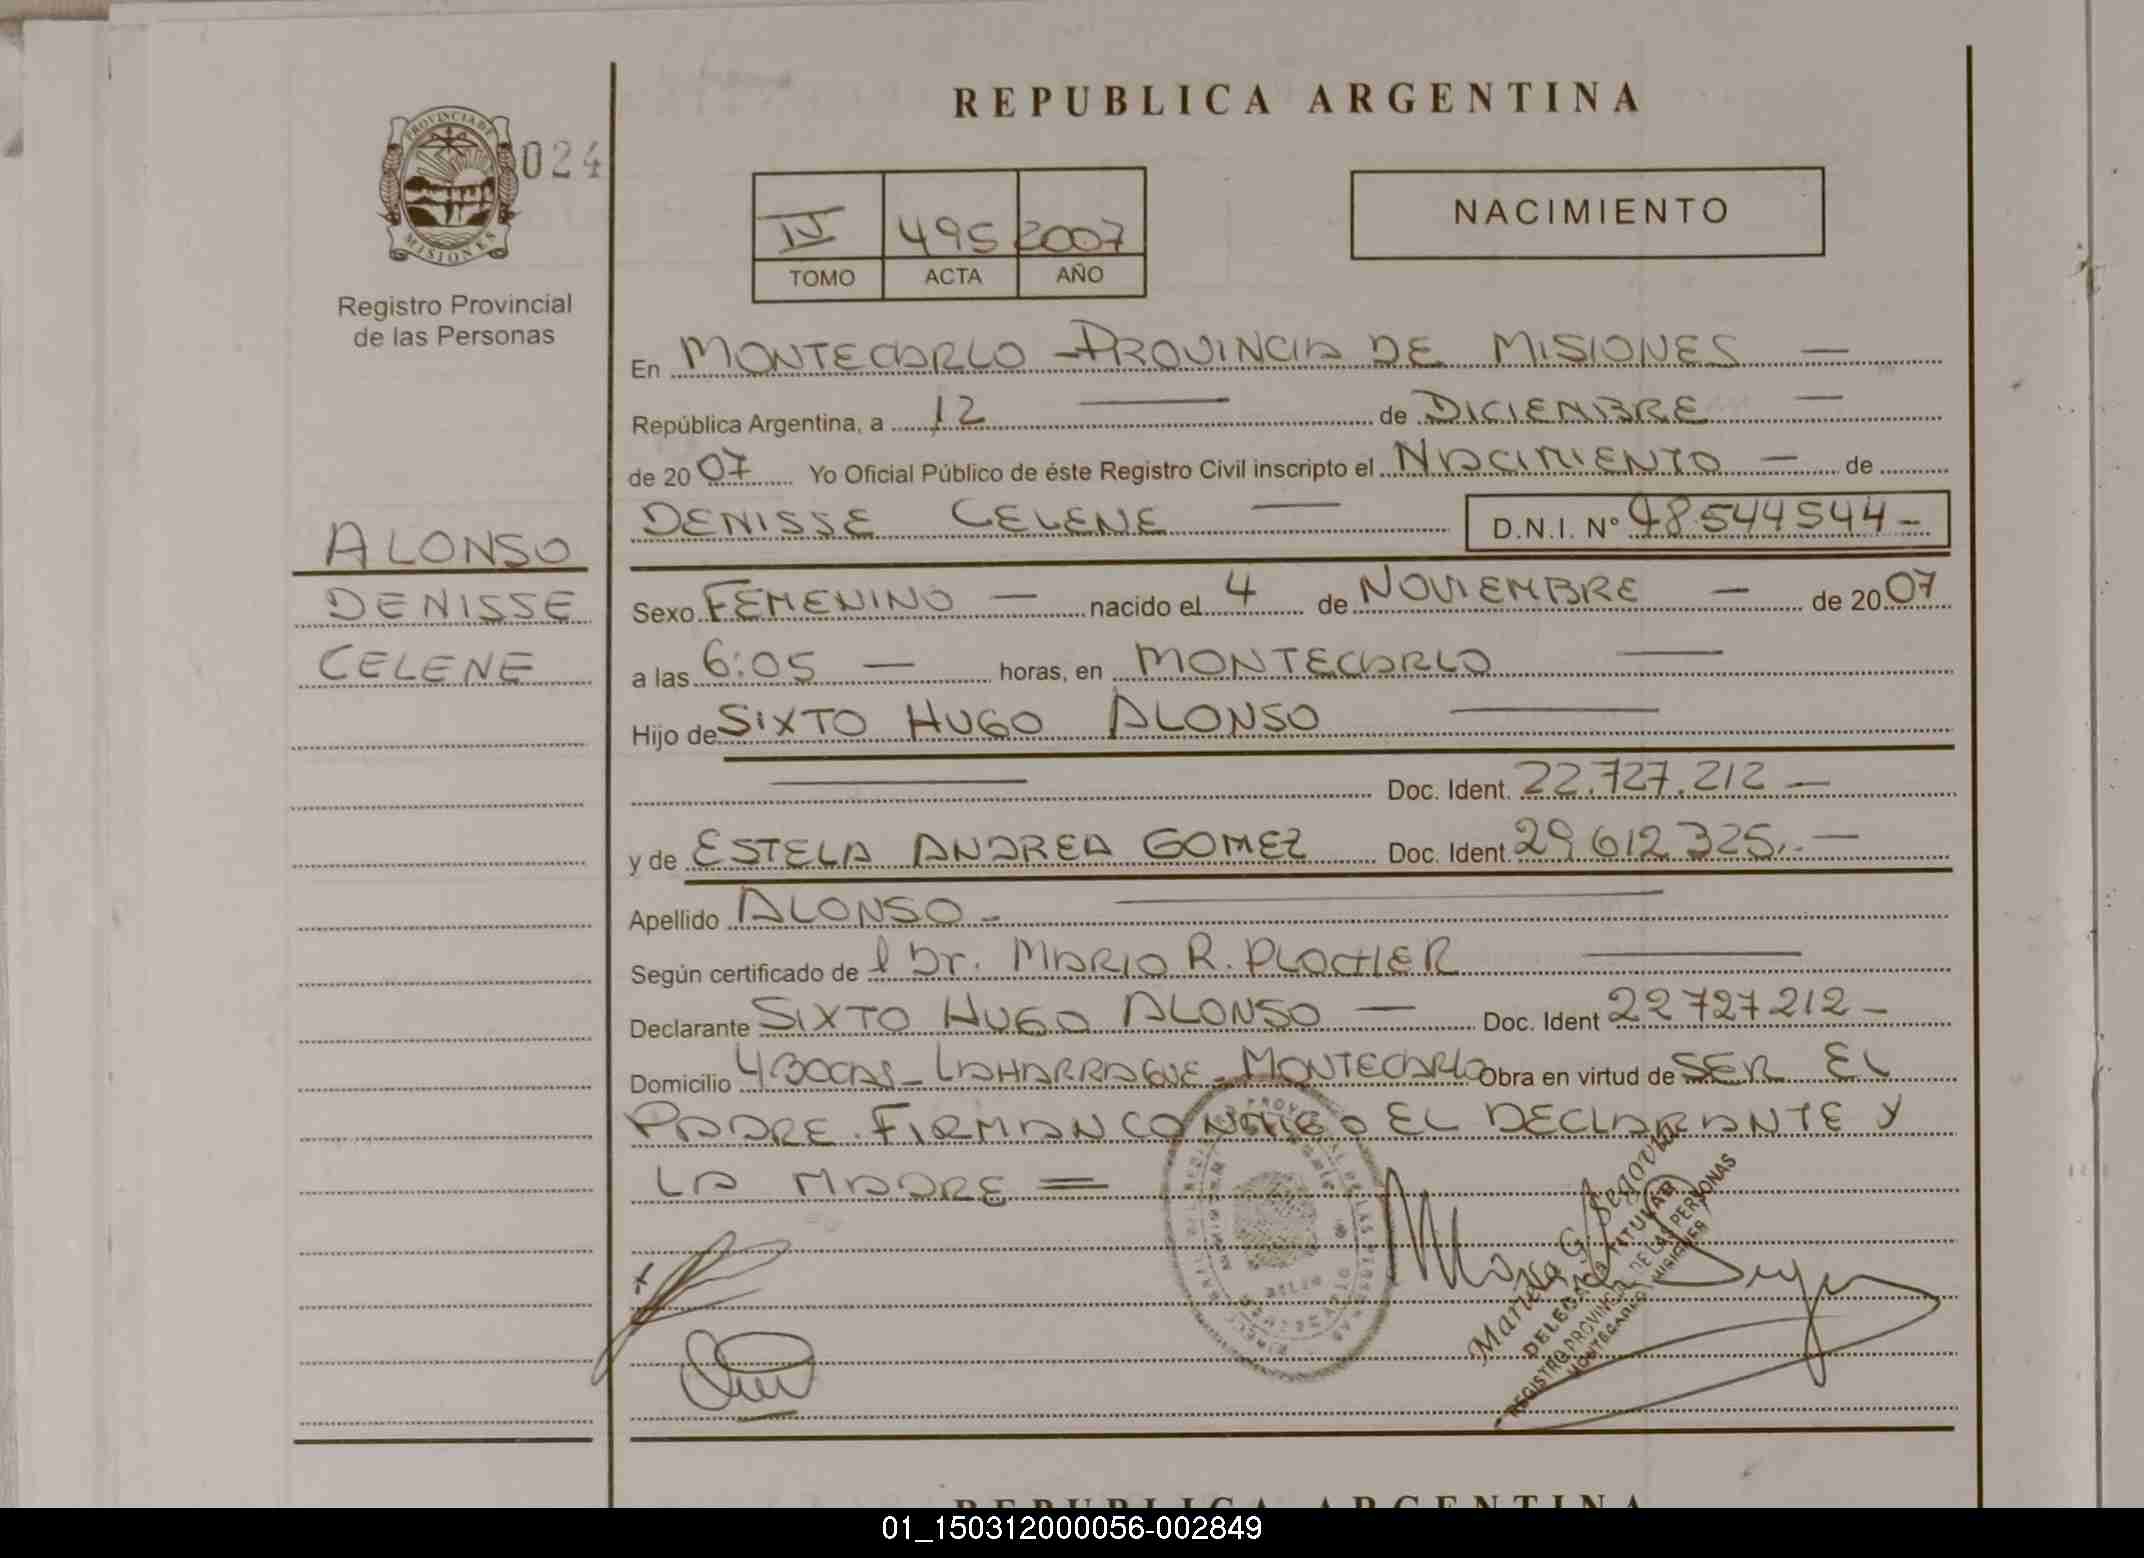 REPUBLICA ARGENTINA
PROVINCIA DE
MISIONES
024
Registro Provincial
de las Personas
IV 495 2007
TOMO ACTA AÑO
NACIMIENTO
En MONTECARLO - PROVINCIA DE MISIONES —
República Argentina, a 12 — de DICIEMBRE —
de 2007 Yo Oficial Público de éste Registro Civil inscripto el NACIMIENTO — de
DENISSE CELENE — D.N.I. Nº 48.544544 -
ALONSO
DENISSE
CELENE
Sexo FEMENINO — nacido el 4 de NOVIEMBRE — de 2007
a las 6:05 — horas, en MONTECARLO —
Hijo de SIXTO HUGO ALONSO —
— Doc. Ident. 22.727.212 —
y de ESTELA ANDREA GOMEZ Doc. Ident. 29.612.325.- —
Apellido ALONSO - —
Según certificado de l Dr. MARIO R. PLOCHER —
Declarante SIXTO HUGO ALONSO — Doc. Ident 22727212 -
Domicilio 4 BOCAS - LAHARRAGUE - MONTECARLO Obra en virtud de SER EL
PADRE. FIRMAN CONMIGO EL DECLARANTE Y
LA MADRE =
Maria G. Segovia
DELEGADA TITULAR
REGISTRO PROVINCIAL DE LAS PERSONAS
MONTECARLO MISIONES
REPUBLICA ARGENTINA
01_150312000056-002849